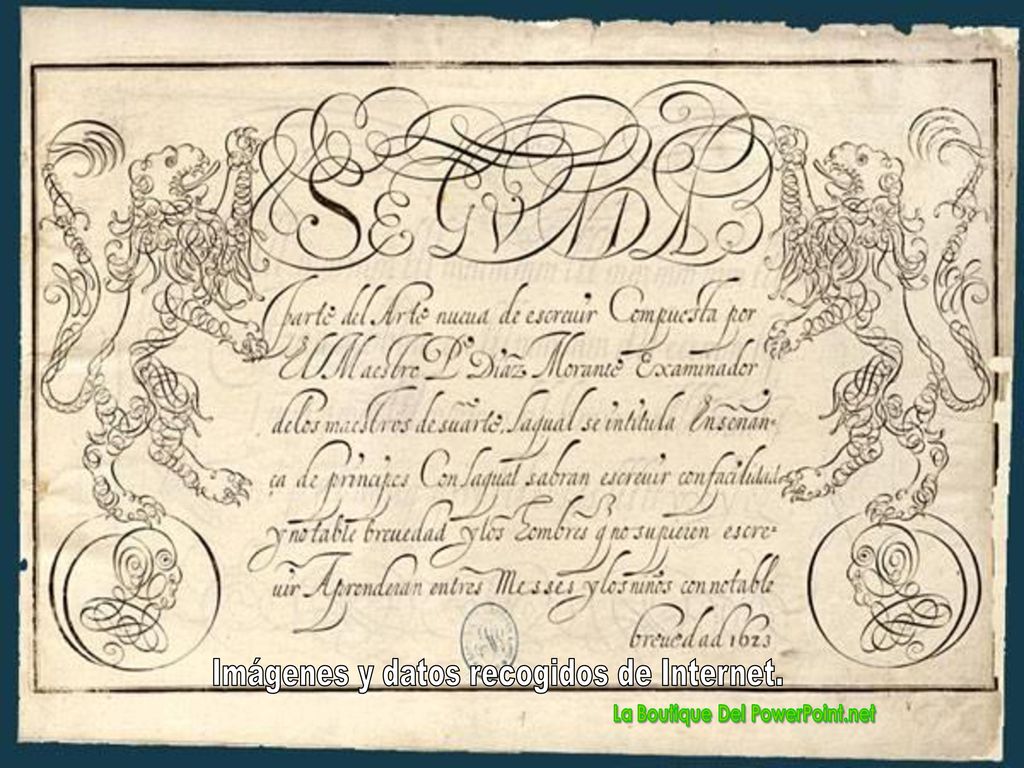 SEGVNDA
parte del Arte nueua de escreuir Compuesta por
El Maestro P.º Diaz Morante Examinador
delos maestros desuarte, laqual se intitula Enseñan-
ça de principes Con laqual sabran escreuir confacilidad
y notable breuedad y los hombres q no supieren escre-
uir Aprenderan entres Messes y los niños con notable
breuedad 1623
Imágenes y datos recogidos de Internet.
La Boutique Del PowerPoint.net